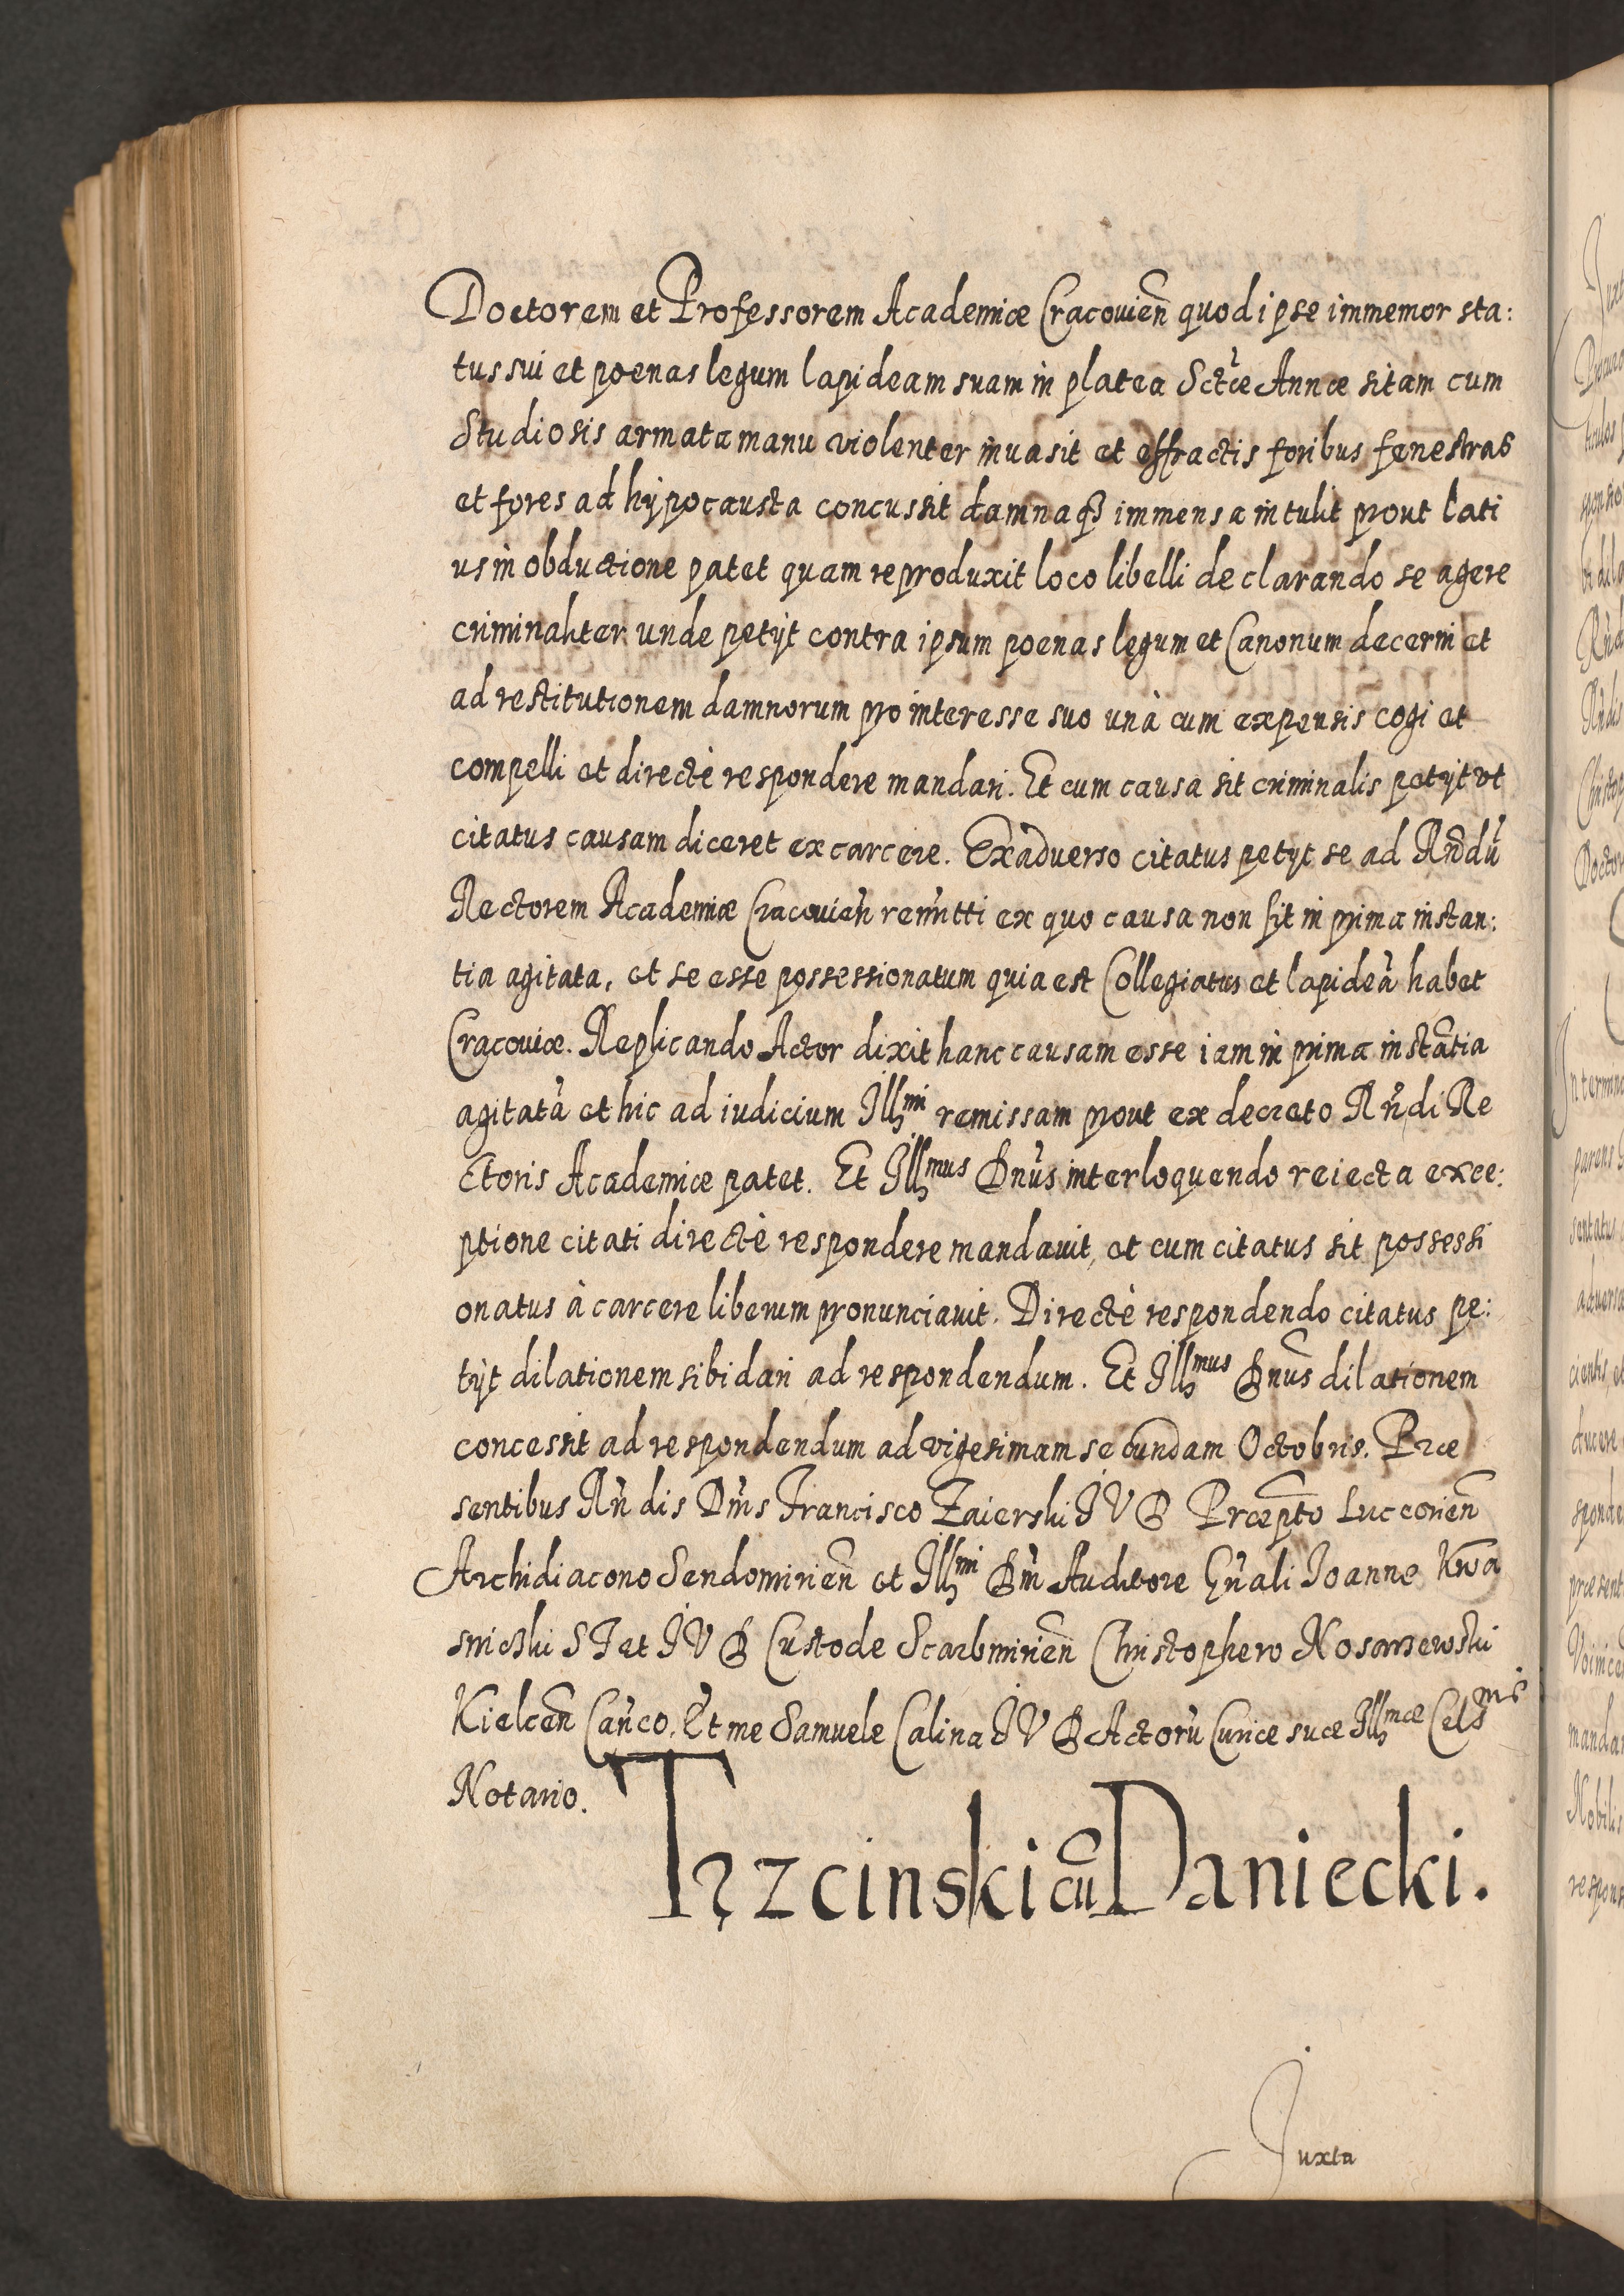 Doctorem et Professorem Academiæ Cracouien̄ quod ipse immemor sta:
tus sui et poenas legum lapideam suam in platea Sctæ Annæ sitam cum
Studiosis armata manu violenter inuasit et effractis foribus fenestras
et fores ad hypocausta concussit damnaqꝫ immensa intulit prout lati
us in obductione patet quam reproduxit loco libelli declarando se agere
criminaliter unde petÿt contra ipsum poenas legum et Canonum decerni et
ad restitutionem damnorum pro interesse suo unà cum expensis cogi et
compelli et directè respondere mandari. Et cum causa sit criminalis petÿt vt
citatus causam diceret ex carcere. Exaduerso citatus petÿt se ad Rn̄dū
Rectorem Academiæ Cracouien̄ remitti ex quo causa non sit in prima instan:
tia agitata, et se esse possessionatum quia est Collegiatus et lapideā habet
Cracouiæ. Replicando Actor dixit hanc causam esse iam in prima instātia
agitatā et hic ad iudicium Illmi remissam prout ex decreto Rn̄di Re
ctoris Academiæ patet. Et Illmus Dn̄us interloquendo reiecta exce:
ptione citati directè respondere mandauit, et cum citatus sit possessi
onatus à carcere liberum pronunciauit. Directè respondendo citatus pe:
tÿt dilationem sibi dari ad respondendum. Et Illmus Dn̄us dilationem
concessit ad respondendum ad vigesimam secundam Octobris. Præ
sentibus Rn̄dis Dn̄is Francisco Zaierski IVD Præpto Luceorien̄
Archidiacono Sendomirien̄ et Illmi Dn̄i Auditore Gn̄ali Ioanne Kwa
śnicski ST et IVD Custode Scarbmirien̄ Christophero Nosarzewski
Kielcen̄ Can̄co. Et me Samuele Calina IVD Actorū Curiæ suæ Illmæ Cels
Notario.
Trzcinski cū Daniecki.
Juxta